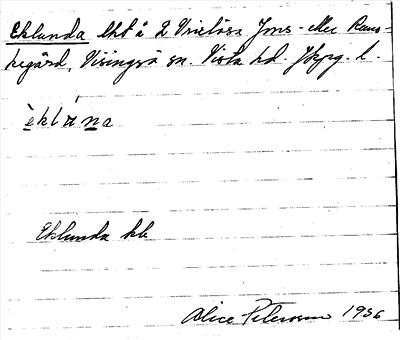 Eklunda lht å 2 Vretlösa Jms- Mee Rams-
hegård, Visingsö sn. Vista hd. Jkpg. l.
èkl na
Eklunda kb
Alice Peterson 1936